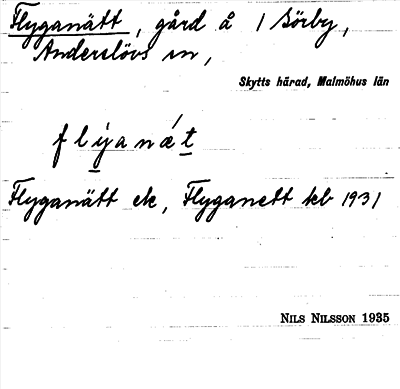 Flyganätt, gård å 1 Sörby,
Anderslövs sn,
Skytts härad, Malmöhus län
flyanǽt
Flyganätt ek, Flyganett kb 1931
NILS NILSSON 1935